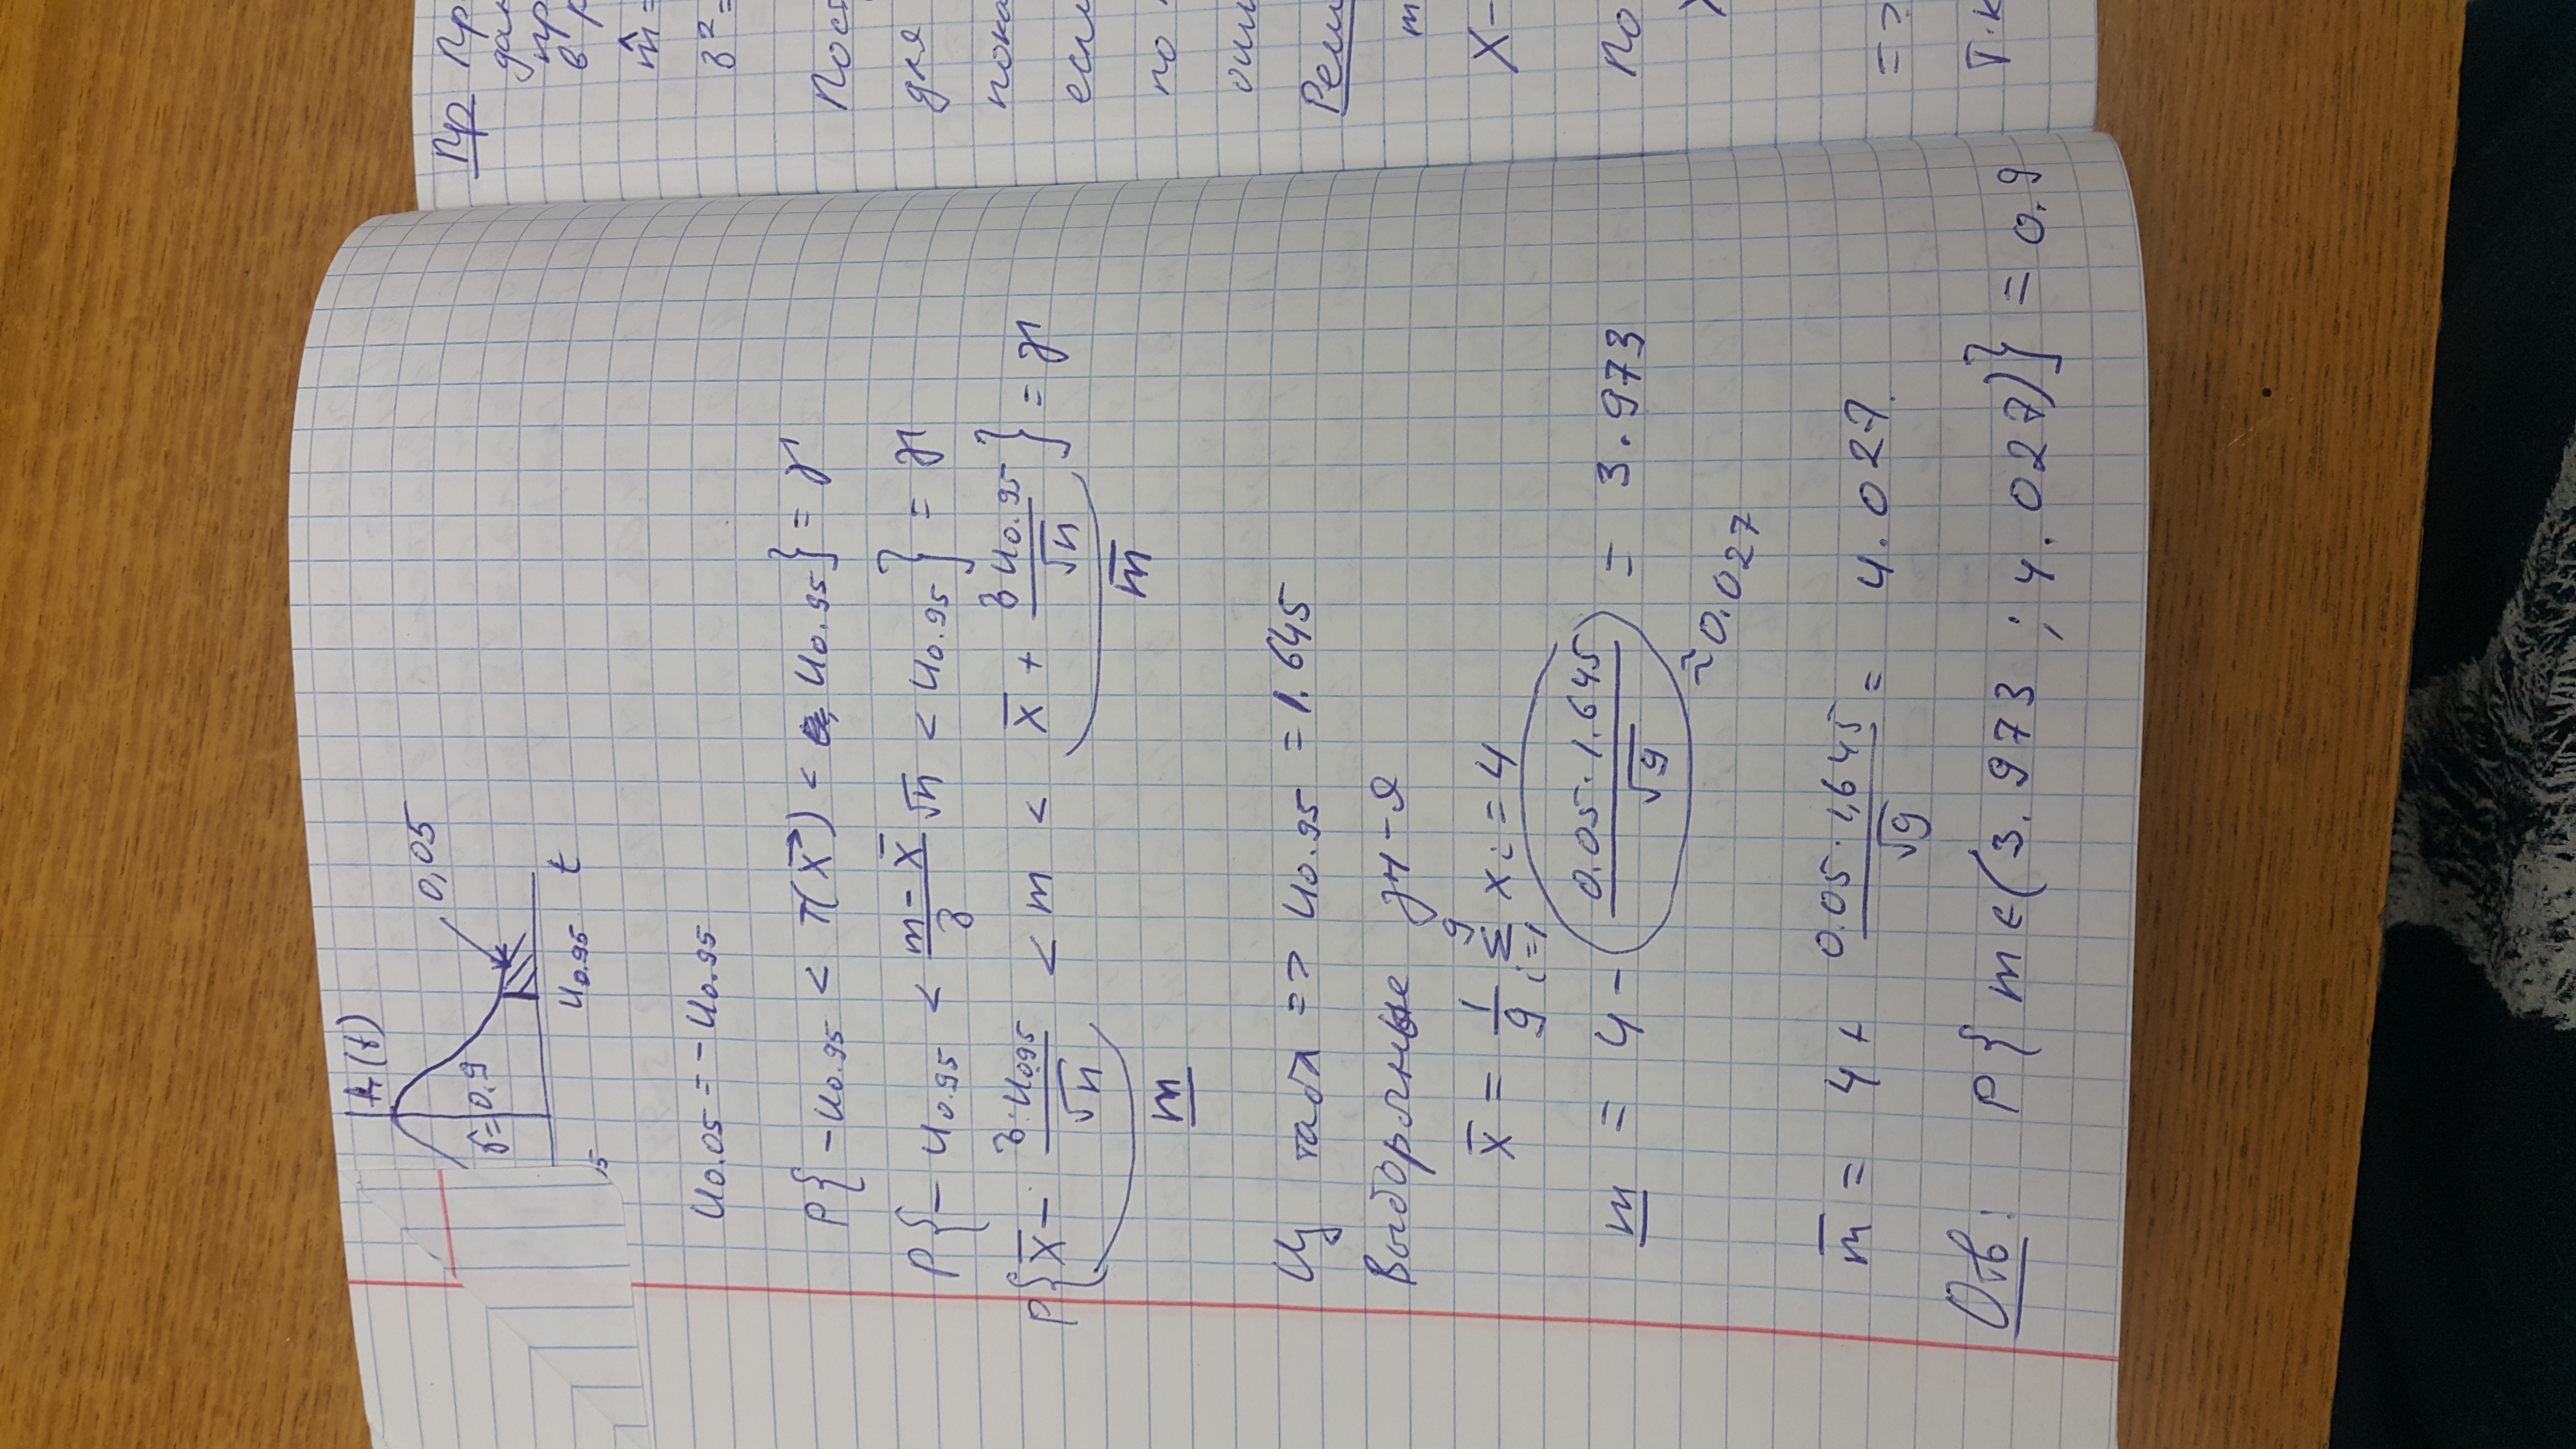 f_T(t)
0,05
γ=0.9
u_0.95 t
u_0.05 = - u_0.95
P{ -u_0.95 < T(X⃗) < u_0.95 } = γ
P{ - u_0.95 < (m - X̄)/σ √n < u_0.95 } = γ
P{ X̄ - σ·u_0.95/√n < m < X̄ + σ u_0.95/√n } = γ
m̲ m̅
Из табл => u_0.95 = 1.645
Выборочные зн-я
x̄ = 1/9 Σ_{i=1}^{9} x_i = 4
m̲ = 4 - 0.05·1.645/√9 = 3.973
≈0.027
m̅ = 4 + 0.05·1,645/√9 = 4.027.
Отв: P{ m ∈ (3.973 ; 4.027)} = 0.9
Пр Пр
дан
пр
в р
m̂ =
σ² =
Пост
для
пока
если
по
оши
Реш
m
X-
По
=>
Т.к